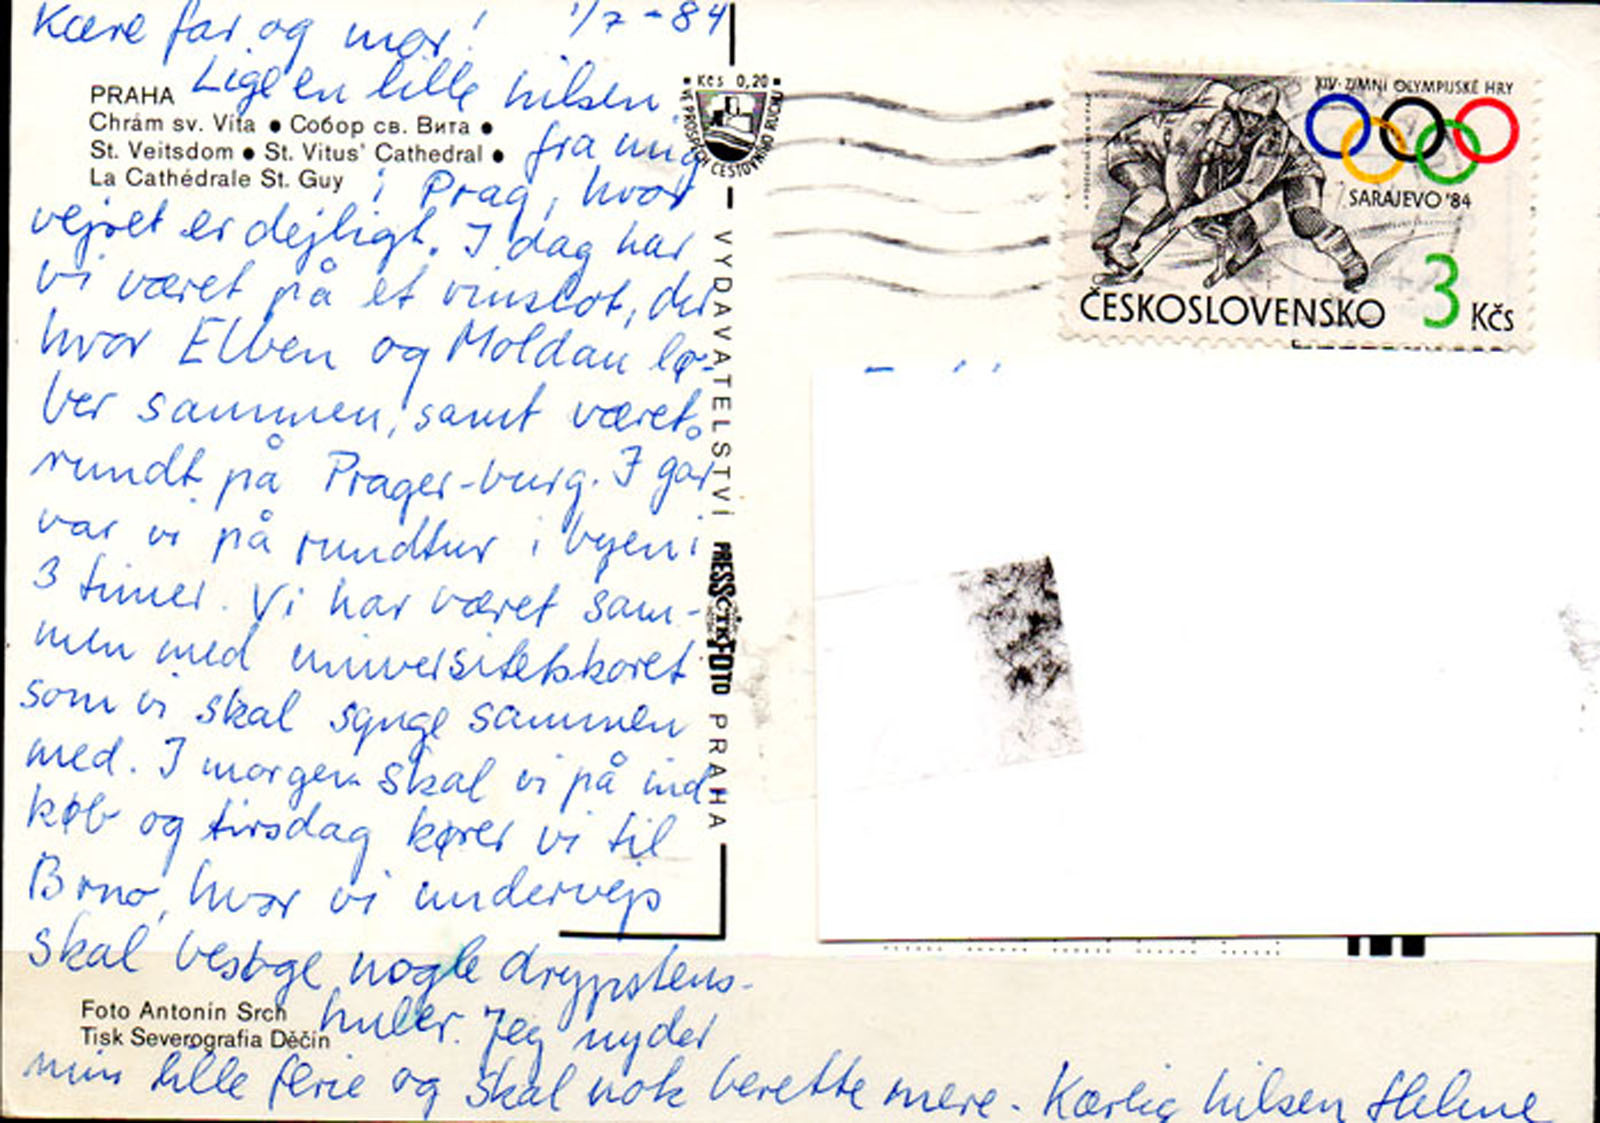 Kære far og mor! 1/7-84
Lige en lille hilsen
fra mig
i Prag, hvor
vejret er dejligt. I dag har
vi været på et vinslot, der
hvor Elben og Moldau lø-
ber sammen, samt været
rundt på Prager-burg. I går
var vi på rundtur i byen i
3 timer. Vi har været sam-
men med universitetskoret
som vi skal synge sammen
med. I morgen skal vi på ind
køb og tirsdag kører vi til
Brno, hvor vi undervejs
skal besøge nogle drypstens-
huler. Jeg nyder
min lille ferie og skal nok berette mere. Kærlig hilsen Helene
PRAHA
Chrám sv. Víta ● Собор св. Вита ●
St. Veitsdom ● St. Vitus' Cathedral ●
La Cathédrale St. Guy
Foto Antonín Srch
Tisk Severografia Děčín
Kčs 0,20
VE PROSPĚCH CESTOVNÍHO RUCHU
VYDAVATELSTVÍ PRESSFOTO PRAHA
ČTK
XIV. ZIMNÍ OLYMPIJSKÉ HRY
SARAJEVO '84
ČESKOSLOVENSKO 3 Kčs